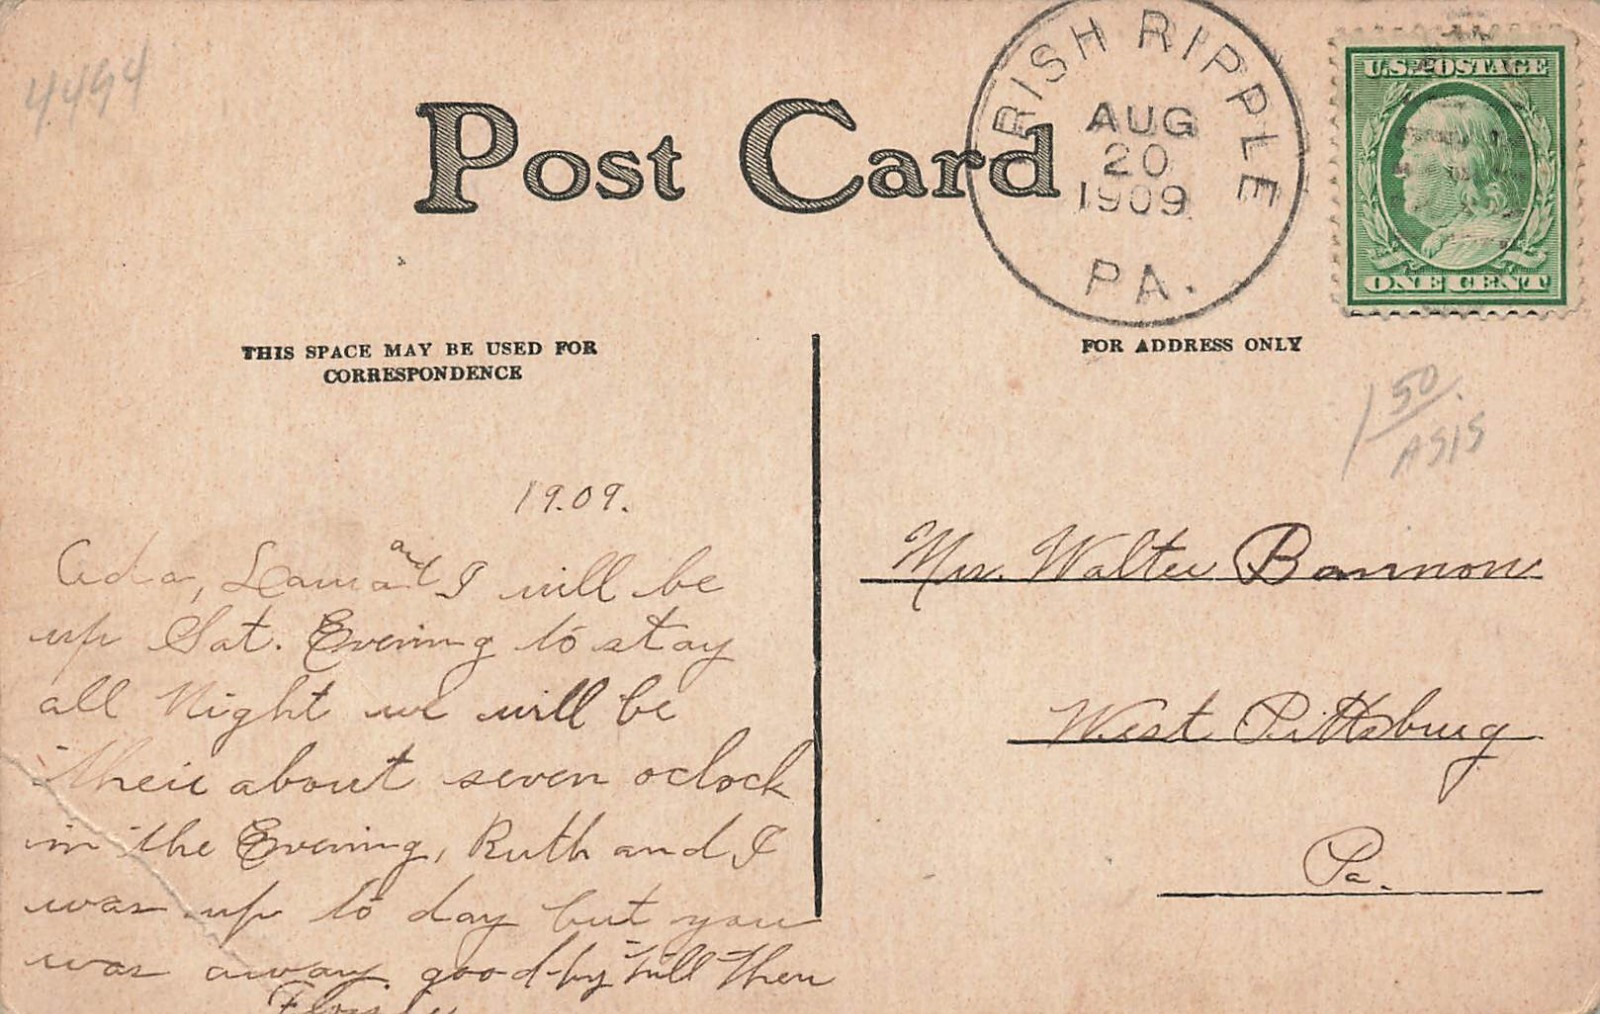 4494
Post Card
IRISH RIPPLE
AUG
20
1909
PA.
U.S. POSTAGE
ONE CENT
THIS SPACE MAY BE USED FOR
CORRESPONDENCE
FOR ADDRESS ONLY
1 50
AS IS
1909.
Ada, Laura and I will be
up Sat. Evening to stay
all Night we will be
their about seven oclock
in the Evening, Ruth and I
was up to day but you
was away. good-by till then
Mr. Walter Bannon
West Pittsburg
Pa.